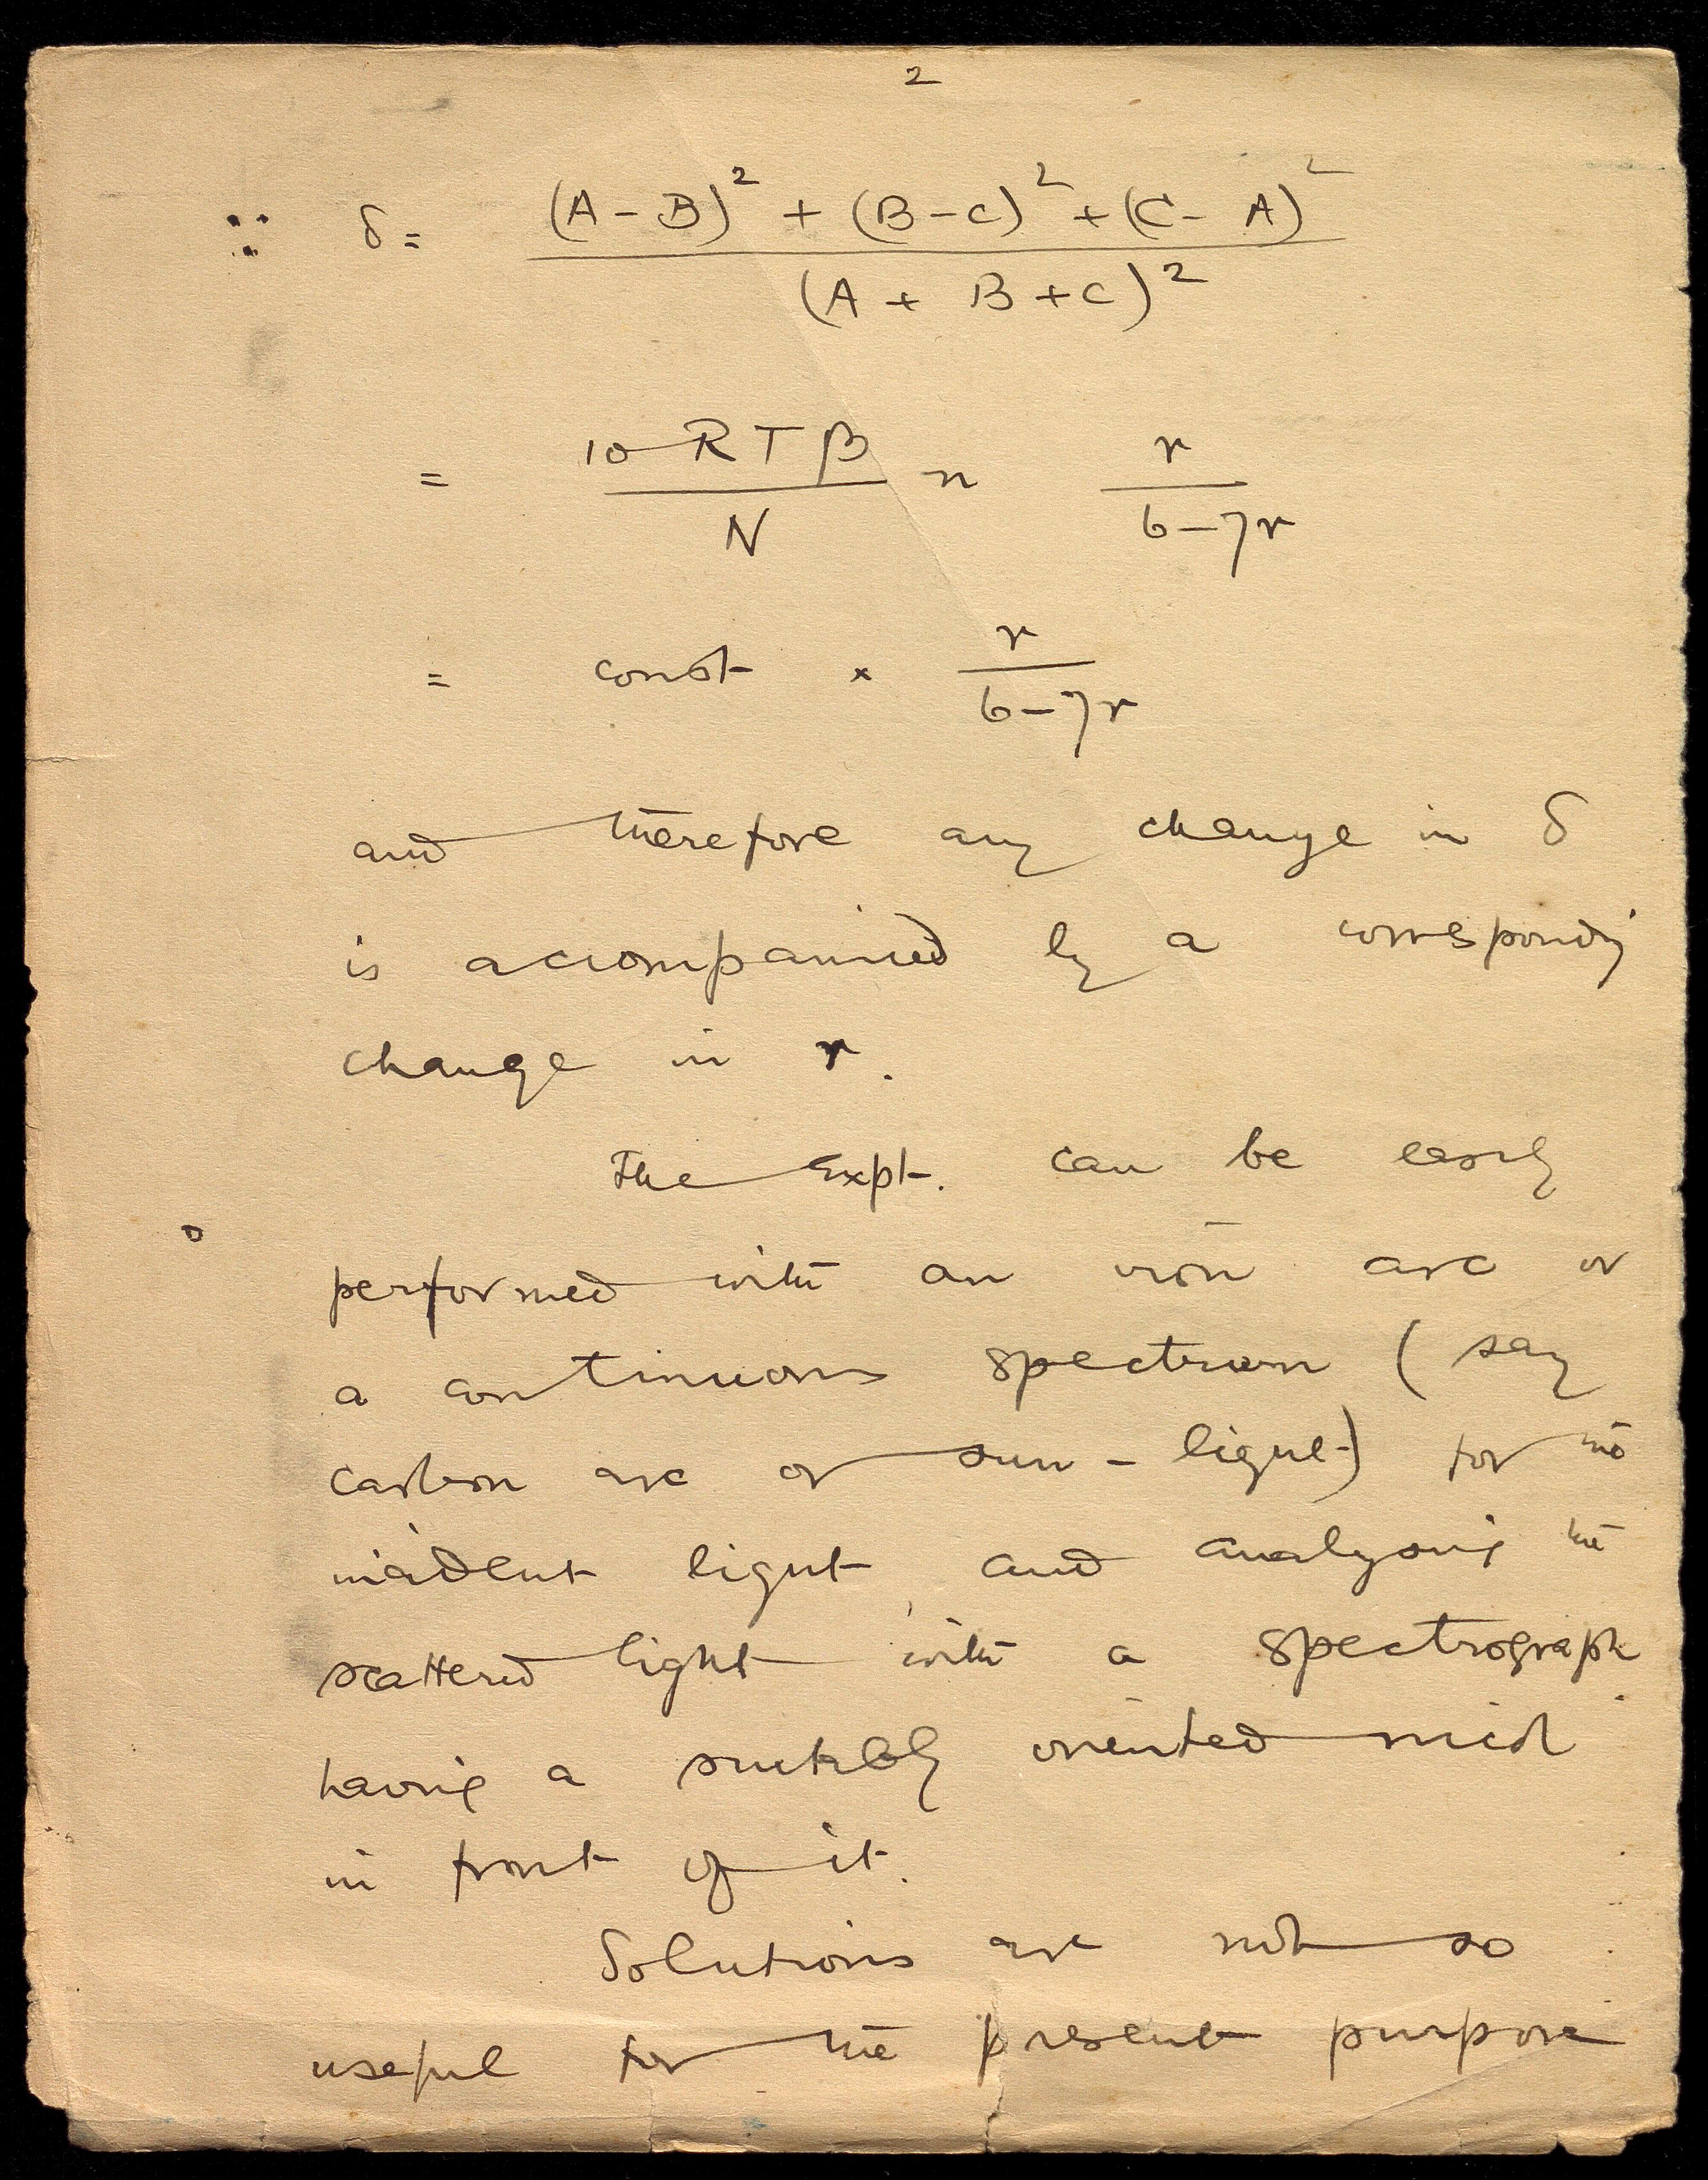 2
∵ δ = (A - B)² + (B - C)² + (C - A)² / (A + B + C)²
= 10 R T β / N n r / 6 - 7r
= const × r / 6 - 7r
and therefore any change in δ
is accompanied by a corresponding
change in r.
The Expt. can be easily
performed with an iron arc or
a continuous spectrum (say
carbon arc or sun - light) for the
incident light, and analysing the
scattered light with a spectrograph
having a suitably oriented nicol
in front of it.
Solutions are not so
useful for the present purpose